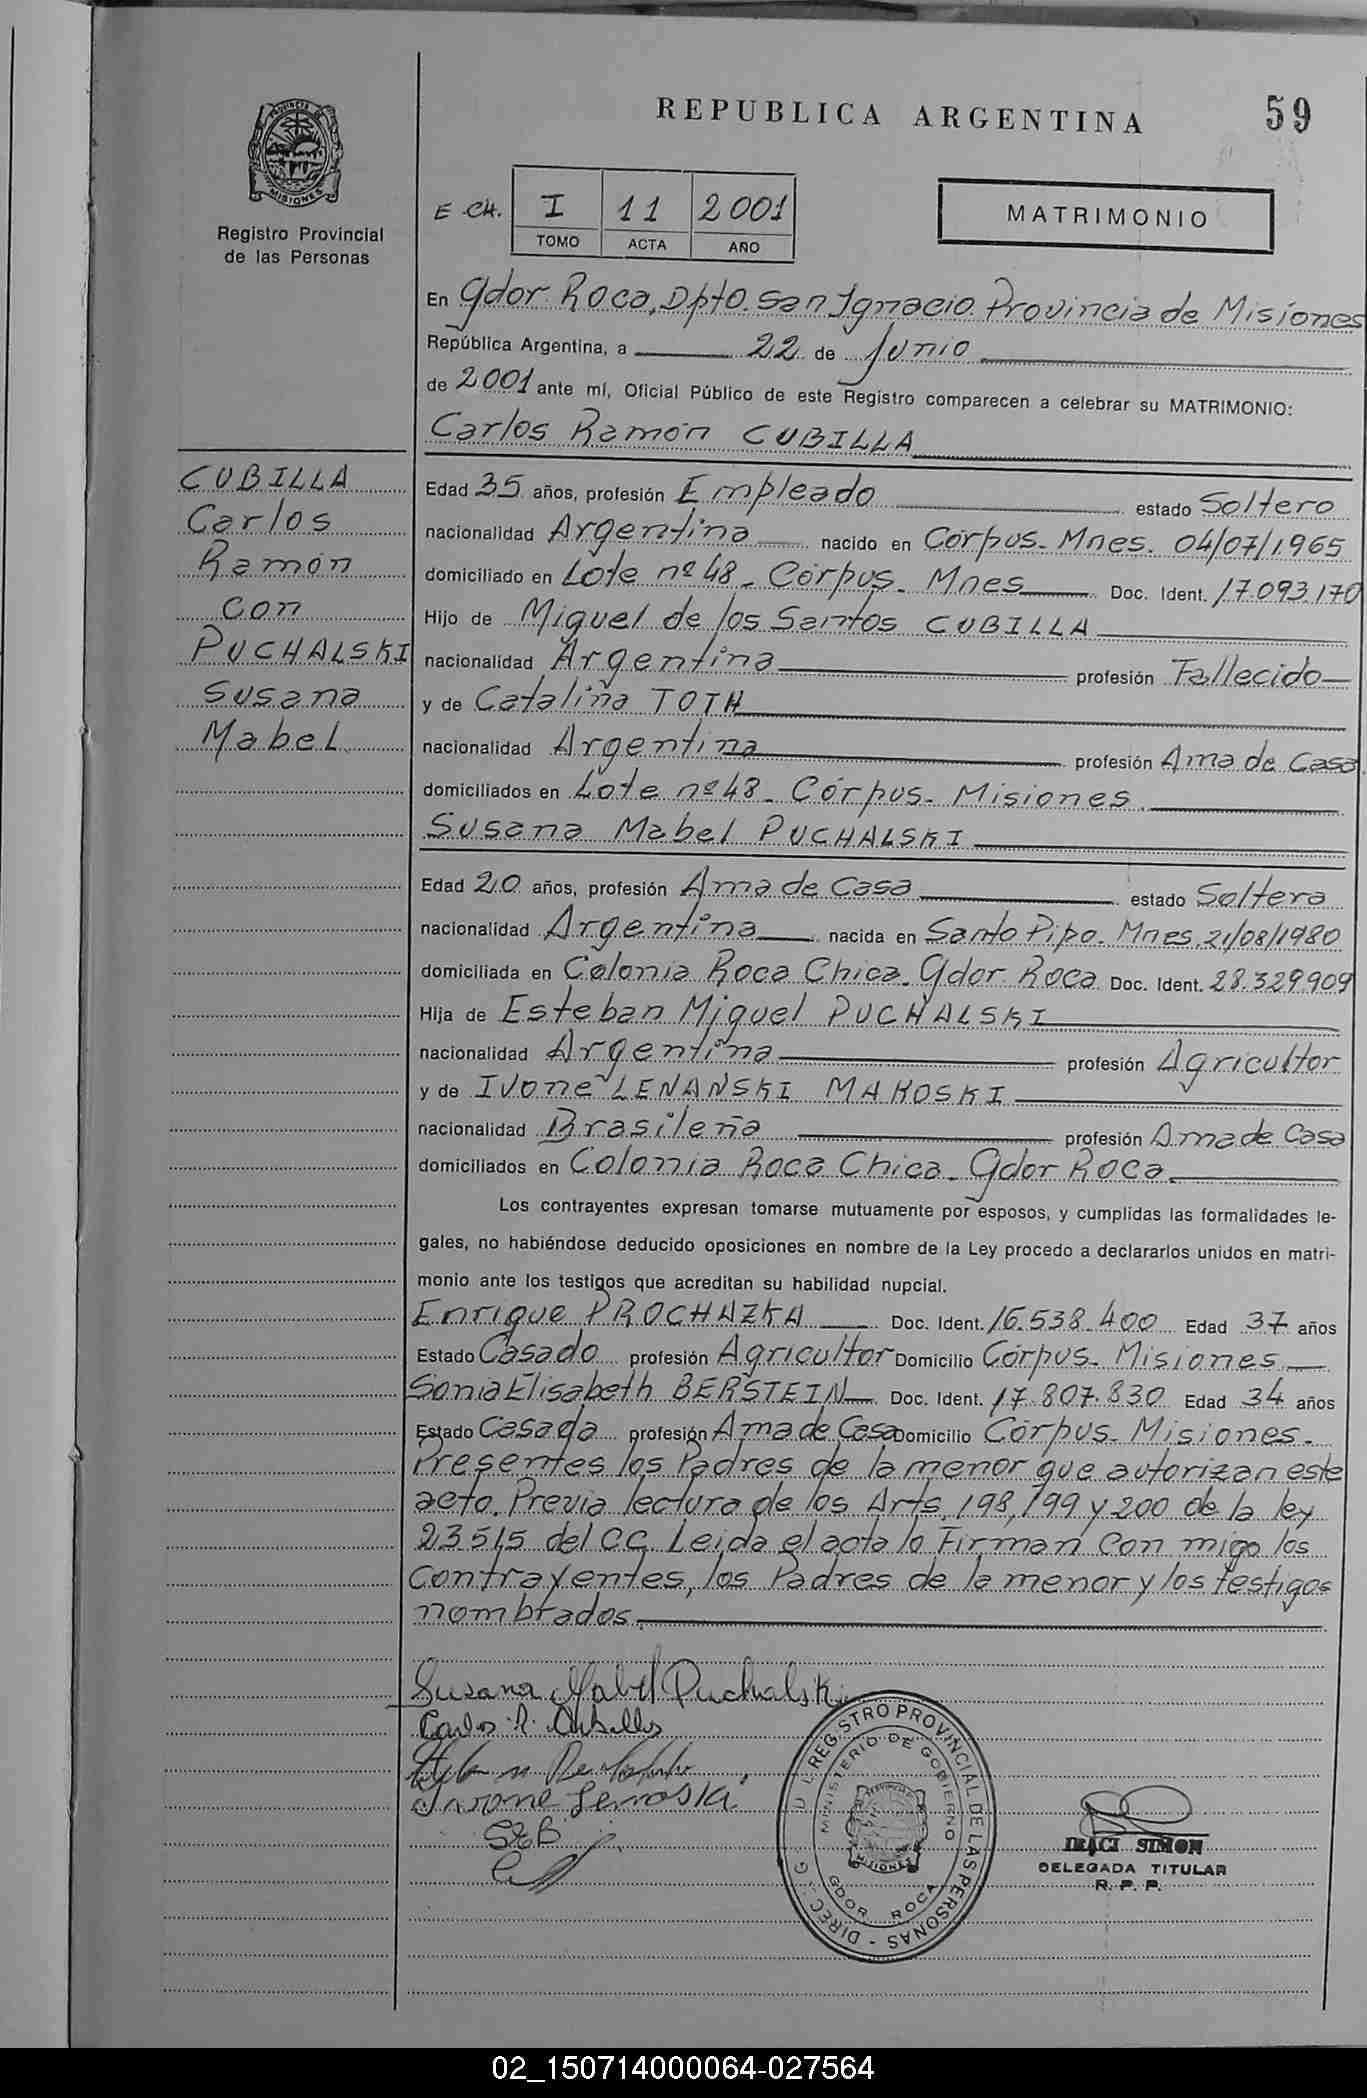 REPUBLICA ARGENTINA
59
PROVINCIA DE
MISIONES
Registro Provincial
de las Personas
E CH. I 11 2001
TOMO ACTA AÑO
MATRIMONIO
En Gdor. Roca, Dpto. San Ignacio. Provincia de Misiones
República Argentina, a 22 de Junio
de 2001 ante mí, Oficial Público de este Registro comparecen a celebrar su MATRIMONIO:
Carlos Ramón CUBILLA
CUBILLA
Carlos
Ramón
con
PUCHALSKI
Susana
Mabel
Edad 35 años, profesión Empleado estado Soltero
nacionalidad Argentina nacido en Córpus. Mnes. 04/07/1965
domiciliado en Lote nº 48 - Córpus. Mnes Doc. Ident. 17.093.170
Hijo de Miguel de los Santos CUBILLA
nacionalidad Argentina profesión Fallecido
y de Catalina TOTH
nacionalidad Argentina profesión Ama de Casa
domiciliados en Lote nº 48 - Córpus - Misiones
Susana Mabel PUCHALSKI
Edad 20 años, profesión Ama de Casa estado Soltera
nacionalidad Argentina nacida en Santo Pipo. Mnes. 21/08/1980
domiciliada en Colonia Roca Chica. Gdor. Roca Doc. Ident. 28.329.909
Hija de Esteban Miguel PUCHALSKI
nacionalidad Argentina profesión Agricultor
y de Ivone LENANSKI MAKOSKI
nacionalidad Brasileña profesión Ama de Casa
domiciliados en Colonia Roca Chica - Gdor Roca
Los contrayentes expresan tomarse mutuamente por esposos, y cumplidas las formalidades le-
gales, no habiéndose deducido oposiciones en nombre de la Ley procedo a declararlos unidos en matri-
monio ante los testigos que acreditan su habilidad nupcial.
Enrique PROCHAZKA Doc. Ident. 16.538.400 Edad 37 años
Estado Casado profesión Agricultor Domicilio Córpus - Misiones
Sonia Elisabeth BERSTEIN Doc. Ident. 17.807.830 Edad 34 años
Estado Casada profesión Ama de Casa Domicilio Córpus - Misiones -
Presentes los Padres de la menor que autorizan este
acto. Previa lectura de los Arts. 198, 199 y 200 de la ley
23515 del CC. Leida el acta la Firman Con migo los
Contrayentes, los Padres de la menor y los testigos
nombrados.
Susana Mabel Puchalski
Carlos R. Cubilla
SEB
DIREC. G. U L REGISTRO PROVINCIAL DE LAS PERSONAS -
MINISTERIO DE GOBIERNO
MISIONES
GDOR ROCA
IRACI SIMON
DELEGADA TITULAR
R. P. P.
02_150714000064-027564